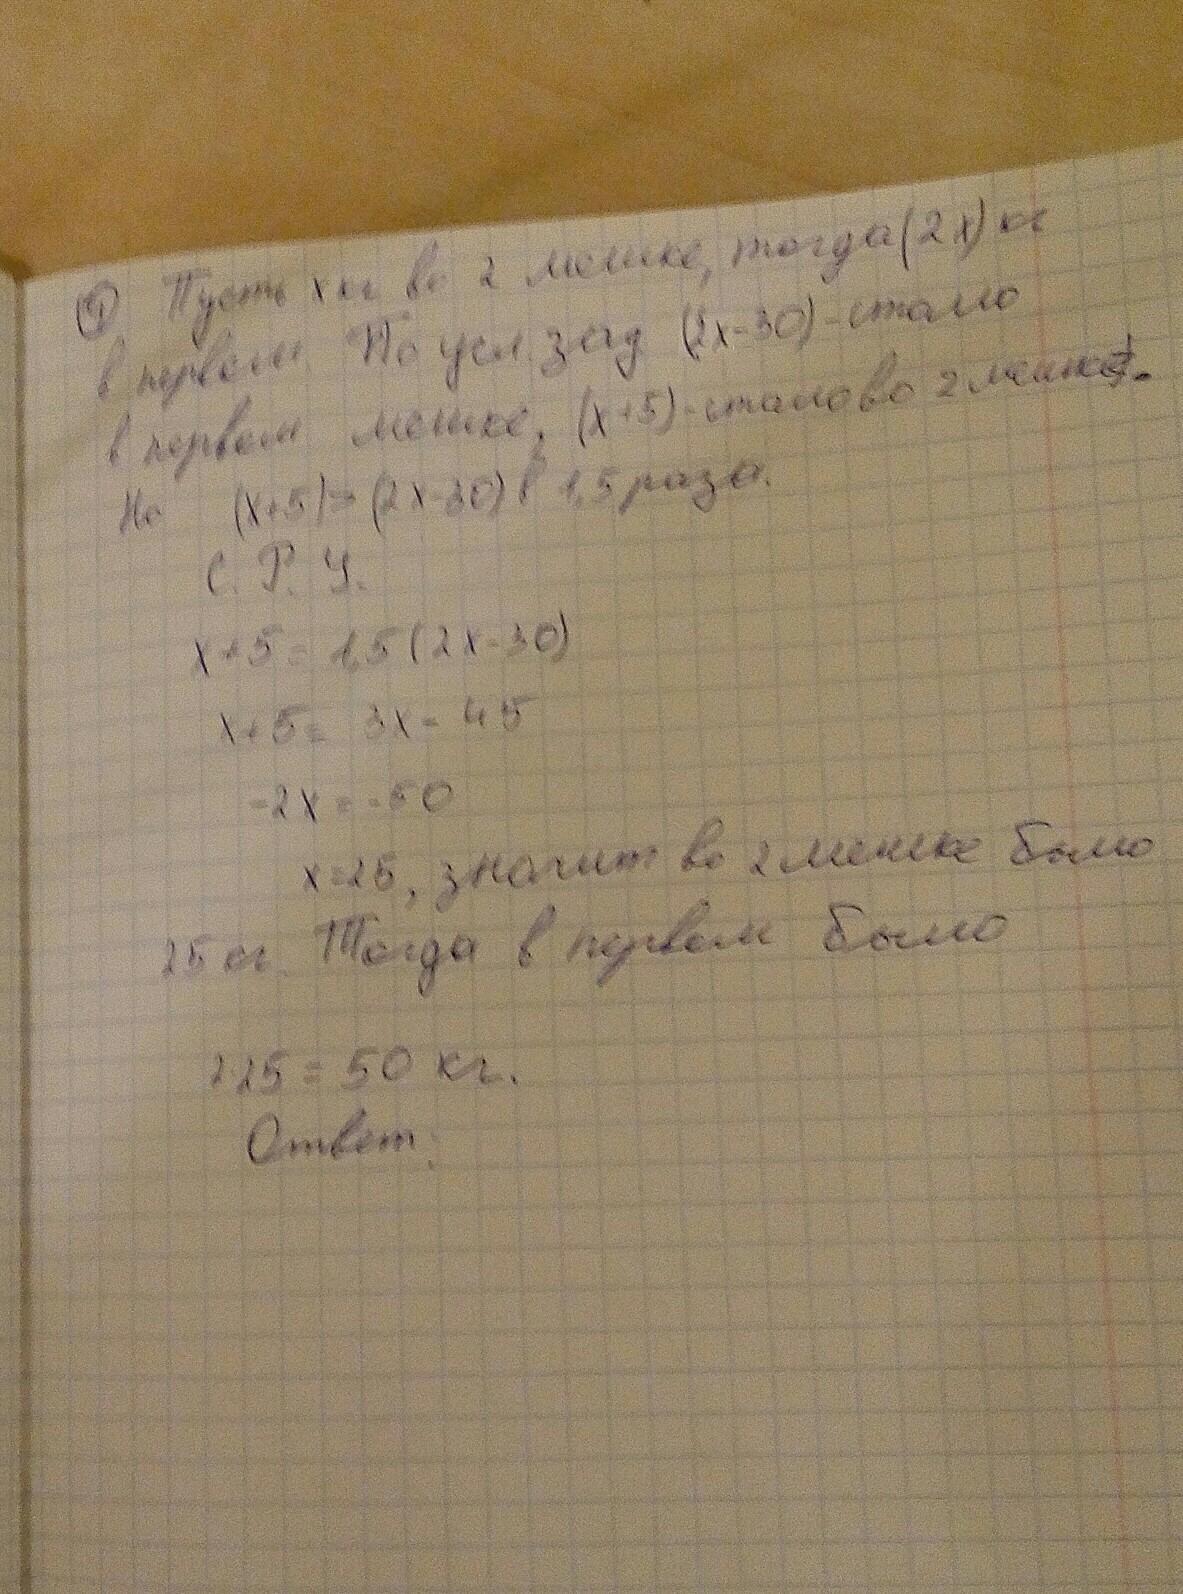 ① Пусть x кг во 2 мешке, тогда (2x) кг
в первом. По усл. зад (2x-30)-стало
в первом мешке, (x+5)-стало во 2 мешке.
Но (x+5)>(2x-30) в 1,5 раза.
С. Р. У.
x+5=1,5(2x-30)
x+5= 3x-45
-2x=-50
x=25, значит во 2 мешке было
25 кг. Тогда в первом было
2·25=50 кг.
Ответ: